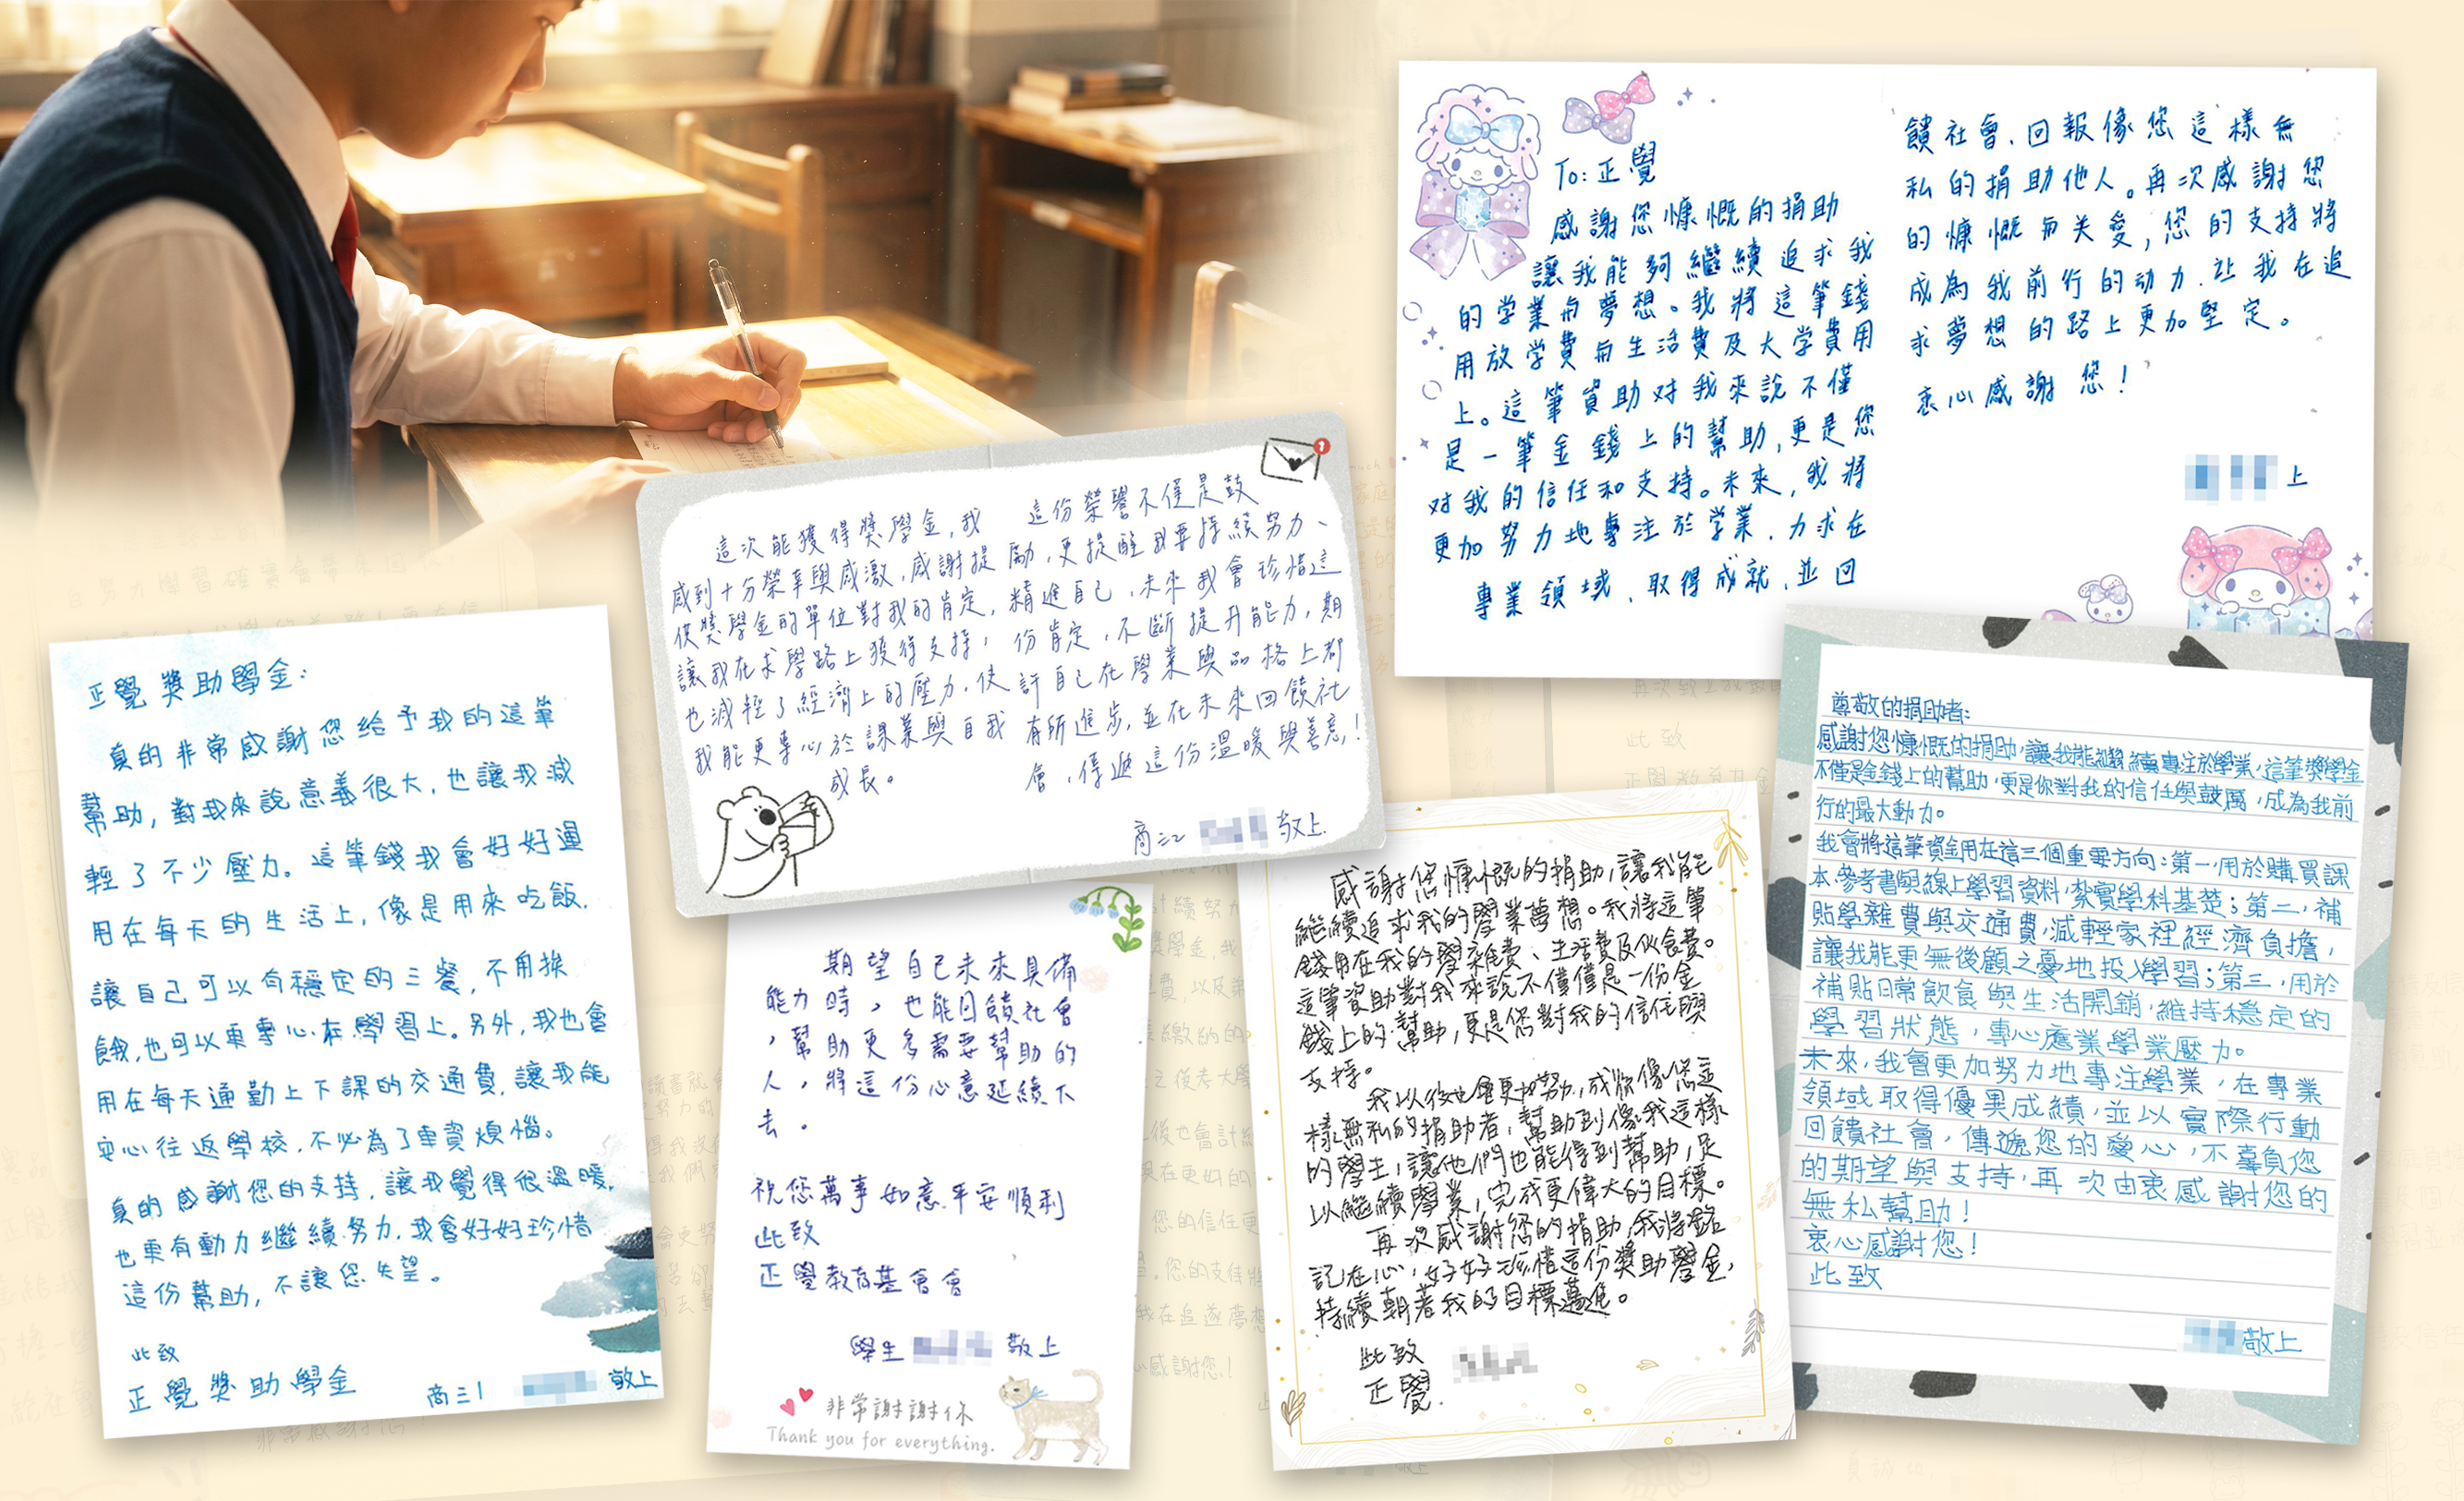 To: 正覺
感謝您慷慨的捐助
讓我能夠繼續追求我
的学業与夢想。我將這筆錢
用放学費与生活費及大学費用
上。這筆資助对我來說不僅
是一筆金錢上的幫助,更是您
对我的信任和支持。未來,我將
更加努力地專注於学業,力求在
專業領域,取得成就,並回
饋社會,回報像您這樣無
私的捐助他人。再次感謝您
的慷慨与关愛,您的支持將
成為我前行的动力,让我在追
求夢想的路上更加堅定。
衷心感謝您!
上
這次能獲得獎學金,我
感到十分榮幸與感激,感謝提
供獎學金的單位對我的肯定,
讓我在求學路上獲得支持,
也減輕了經濟上的壓力,使
我能更專心於課業與自我
成長。
這份榮譽不僅是鼓
勵,更提醒我要持續努力、
精進自己,未來我會珍惜這
份肯定,不斷提升能力,期
許自己在學業與品格上都
有所進步,並在未來回饋社
會,傳遞這份溫暖與善意!
商三2 敬上
正覺獎助學金:
真的非常感謝您給予我的這筆
幫助,對我來說意義很大,也讓我減
輕了不少壓力。這筆錢我會好好運
用在每天的生活上,像是用來吃飯,
讓自己可以有穩定的三餐,不用挨
餓,也可以更專心在學習上。另外,我也會
用在每天通勤上下課的交通費,讓我能
安心往返學校,不必為了車資煩惱。
真的感謝您的支持,讓我覺得很溫暖,
也更有動力繼續努力,我會好好珍惜
這份幫助,不讓您失望。
此致
正覺獎助學金
商三1 敬上
期望自己未來具備
能力時,也能回饋社會
,幫助更多需要幫助的
人,將這份心意延續下
去。
祝您萬事如意平安順利
此致
正覺教育基會會
學生 敬上
非常謝謝你
Thank you for everything.
感謝您慷慨的捐助,讓我能
繼續追求我的學業夢想。我將這筆
錢用在我的學雜費、生活費及伙食費。
這筆資助對我來說不僅僅是一份金
錢上的幫助,更是您對我的信任與
支持。
我以後也會更加努力,成為像您這
樣無私的捐助者,幫助到像我這樣
的學生,讓他們也能得到幫助,足
以繼續學業,完成更偉大的目標。
再次感謝您的捐助,我將銘
記在心,好好珍惜這份獎助學金,
持續朝著我的目標邁進。
此致
正覺
尊敬的捐助者:
感謝您慷慨的捐助,讓我能繼續專注於學業,這筆獎學金
不僅是金錢上的幫助,更是你對我的信任與鼓厲,成為我前
行的最大動力。
我會將這筆資金用在這三個重要方向:第一,用於購買課
本,參考書與線上學習資料,紮實學科基楚;第二,補
貼學雜費與交通費,減輕家裡經濟負擔,
讓我能更無後顧之憂地投入學習;第三,用於
補貼日常飲食與生活開銷,維持穩定的
學習狀態,專心應業學業壓力。
未來,我會更加努力地專注學業,在專業
領域取得優異成績,並以實際行動
回饋社會,傳遞您的愛心,不辜負您
的期望與支持,再次由衷感謝您的
無私幫助!
衷心感謝您!
此致
敬上